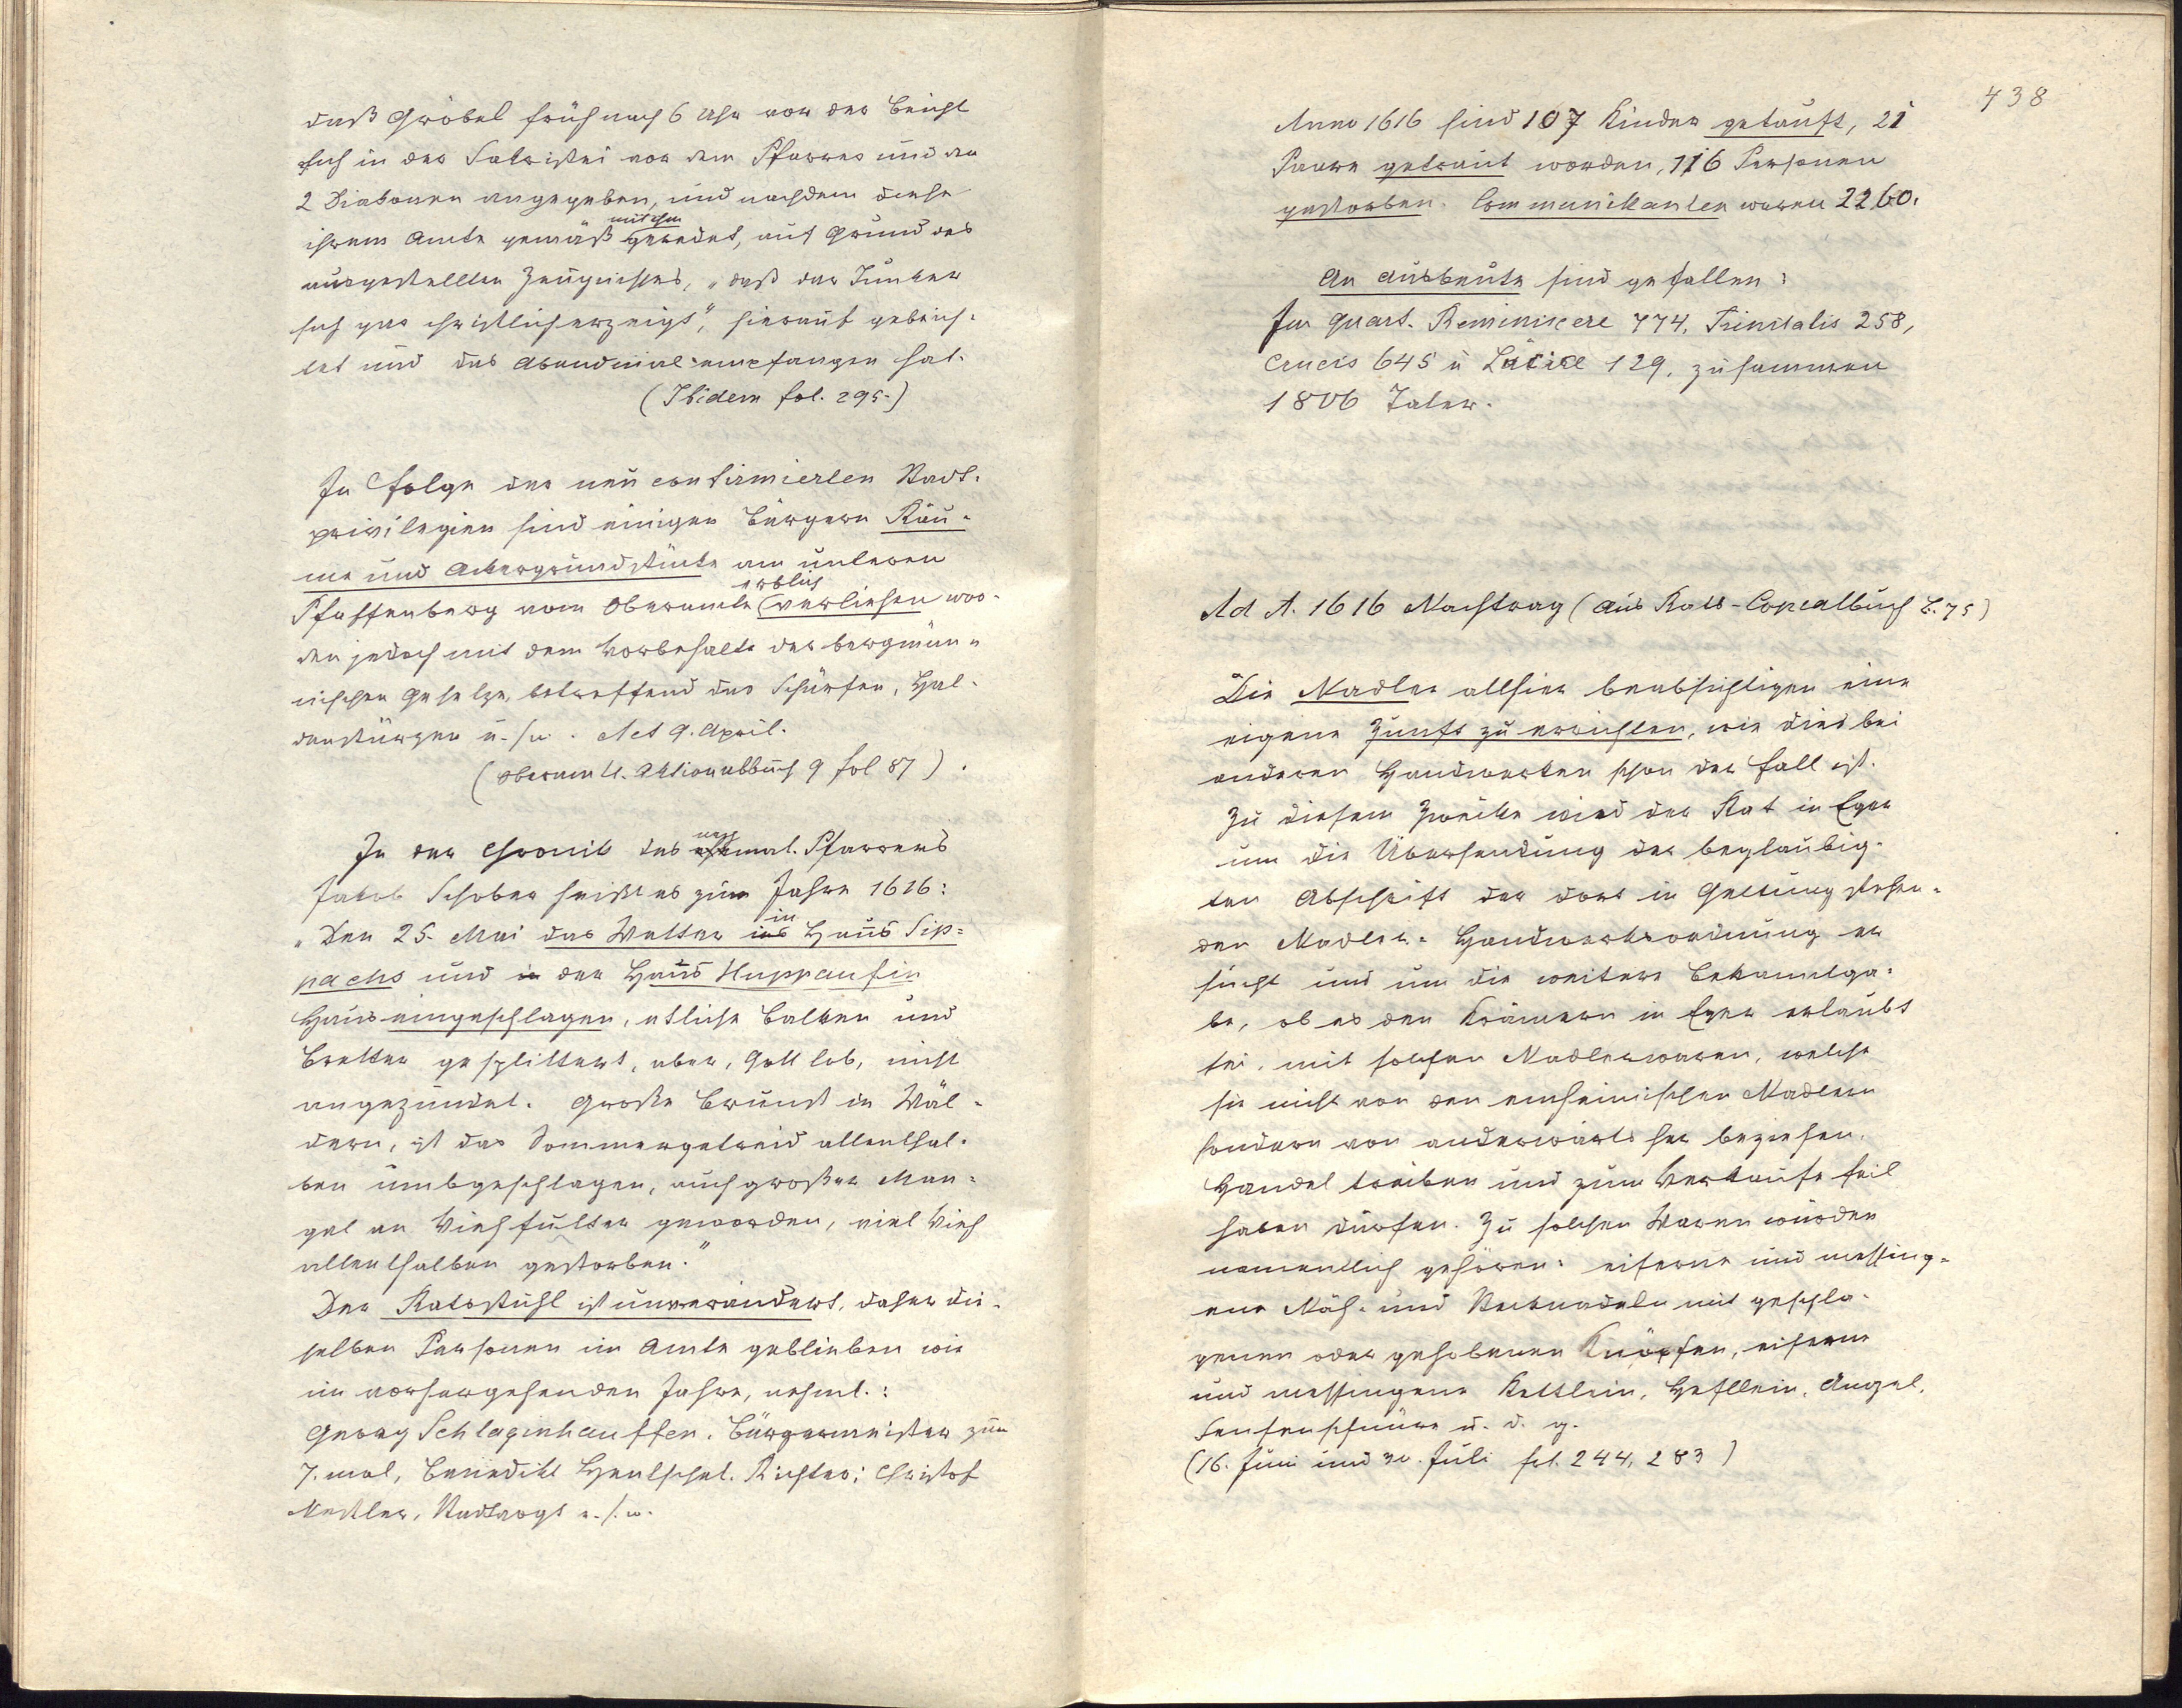 daß Gröbel früh nach 6 Uhr vor der Beicht
sich in der Sakristei vor dem Pfarrer und den
2 Diakonen angegeben, und nachdem diese
mit ihm
ihrem Amte gemäß geredet, auf Grund des
ausgestellten Zeugnisses, „daß der Junker
sich gar christlich erzeigt", hierauf gebeich-
tet und das Abendmal empfangen hat.
(Ibidem fol. 295.)
In Folge der neu confirmierten Stadt-
privilegien sind einigen Bürgern Räu-
me und Ackergrundstücke am unteren
erblich
Pfaffenberg vom Oberamte verliehen wor-
den jedoch mit dem Vorbehalte der bergmän-
nischen Gesetze, betreffend das Schürfen, Hal-
denstürzen u.s.w. Act 9. April.
(Oberamtl. Aktionalbuch 9 fol 87).
In der Chronik des nachmal. Pfarrers
Jakob Schober heißt es zum Jahre 1616:
in
„Den 25. Mai das Wetter ins Haus Sip-
pachs und in der Hans Huppaufin
Haus eingeschlagen, etliche Balken und
Bretter gesplittert, aber, Gott lob, nicht
angezündet. Große Brunst in Wäl-
dern, ist das Sommergetreid allenthal-
ben umbgeschlagen, auch großer Man-
gel an Viehfutter geworden, viel Vieh
allenthalben gestorben."
Der Ratsstuhl ist unverändert, daher die-
selben Personen im Amte geblieben wie
im vorhergehenden Jahre, nehml.:
Georg Schlaginhauffen, Bürgermeister zum
7. mal, Benedikt Hentschel, Richter; Christof
Meßler, Stadtvogt u.s.w.
438
Anno 1616 sind 107 Kinder getauft, 21
Paare getraut worden, 116 Personen
gestorben. Communikanten waren 2260.
An Ausbeute sind gefallen:
Im Quart. Reminiscere 774, Trinitatis 258,
Crucis 645 u Luciae 129, zusammen
1806 Taler.
Ad A. 1616 Nachtrag (aus Rats-Copealbuch B. 75)
Die Nadler allhier beabsichtigen eine
eigene Zunft zu errichten, wie dies bei
anderen Handwerken schon der Fall ist.
Zu diesem Zwecke wird der Rat in Eger
um die Übersendung der beglaubig-
ten Abschrift der dort in Geltung stehen-
den Nadler-Handwerksordnung er
sucht und um die weitere Bekanntga-
be, ob es den Krämern in Eger erlaubt
sei, mit solchen Nadlerwaren, welche
sie nicht von den einheimischen Nadlern
sondern von anderwärts her beziehen,
Handel treiben und zum Verkaufe feil
haben dürfen. Zu solchen Waren würden
namentlich gehören: eiserne und messing-
ene Näh- und Stecknadeln mit geschla-
genen oder gehobenen Knöpfen, eiserne
und messingene Kettlein, Heftlein, Angel,
Senfenschnüre u. d. g.
(16. Juni und 30. Juli fol. 244, 283)